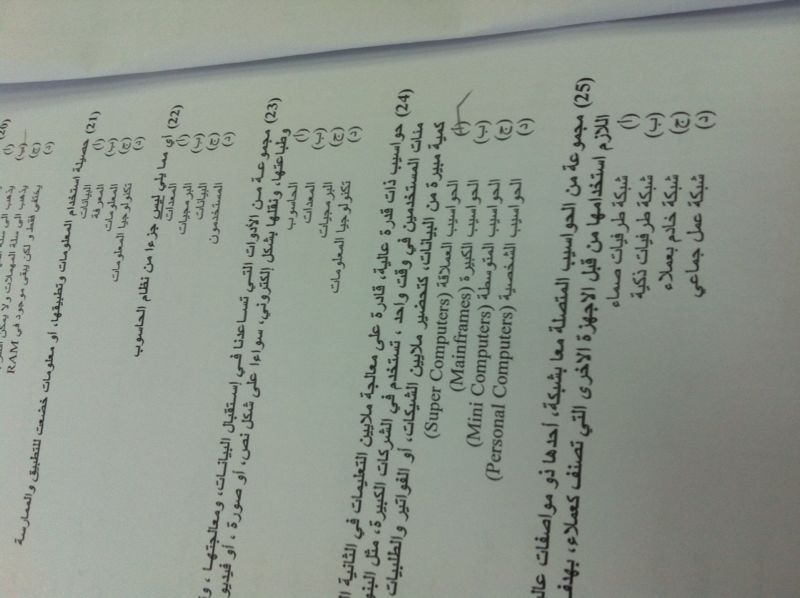 يختفي فقط ولكن يبقى موجود في RAM
(21) حصيلة استخدام المعلومات وتطبيقها، أو معلومات خضعت للتطبيق والممارسة
(أ) البيانات
(ب) المعرفة
(ج) المعلومات
(د) تكنولوجيا المعلومات
(22) أي مما يلي ليس جزءا من نظام الحاسوب
(أ) المعدات
(ب) البرمجيات
(ج) البيانات
(د) المستخدمون
(23) مجموعة من الأدوات التي تساعدنا في إستقبال البيانات، ومعالجتها،
وطباعتها، ونقلها بشكل إلكتروني، سواءا على شكل نص، أو صورة، أو فيديو
(أ) الحاسوب
(ب) المعدات
(ج) البرمجيات
(د) تكنولوجيا المعلومات
(24) حواسيب ذات قدرة عالية، قادرة على معالجة ملايين التعليمات في الثانية
مئات المستخدمين في وقت واحد، تستخدم في الشركات الكبيرة، مثل
كمية كبيرة من البيانات، كتحضير ملايين الشيكات، أو الفواتير والطلبيات
(أ) الحواسيب العملاقة (Super Computers)
(ب) الحواسيب الكبيرة (Mainframes)
(ج) الحواسيب المتوسطة (Mini Computers)
(د) الحواسيب الشخصية (Personal Computers)
(25) مجموعة من الحواسيب المتصلة معا بشبكة، احدها ذو مواصفات
اللازم استخدامها من قبل الاجهزة الاخرى التي تصنف كعملاء، بهدف
(أ) شبكة طرفيات صماء
(ب) شبكة طرفيات ذكية
(ج) شبكة خادم بعملاء
(د) شبكة عمل جماعي